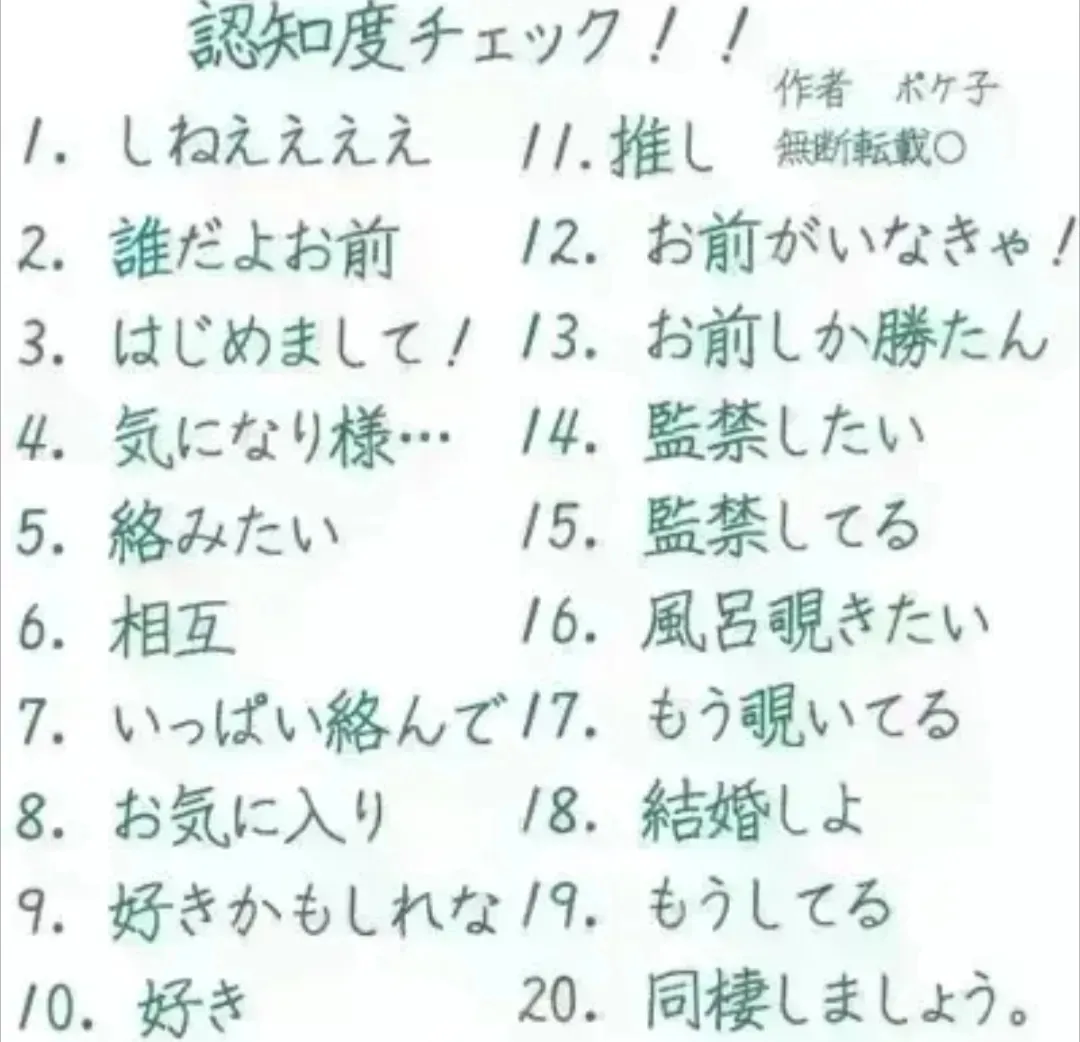 認知度チェック！！
作者　ポケ子
無断転載○
1. しねええええ
2. 誰だよお前
3. はじめまして！
4. 気になり様…
5. 絡みたい
6. 相互
7. いっぱい絡んで
8. お気に入り
9. 好きかもしれな
10. 好き
11. 推し
12. お前がいなきゃ！
13. お前しか勝たん
14. 監禁したい
15. 監禁してる
16. 風呂覗きたい
17. もう覗いてる
18. 結婚しよ
19. もうしてる
20. 同棲しましょう。